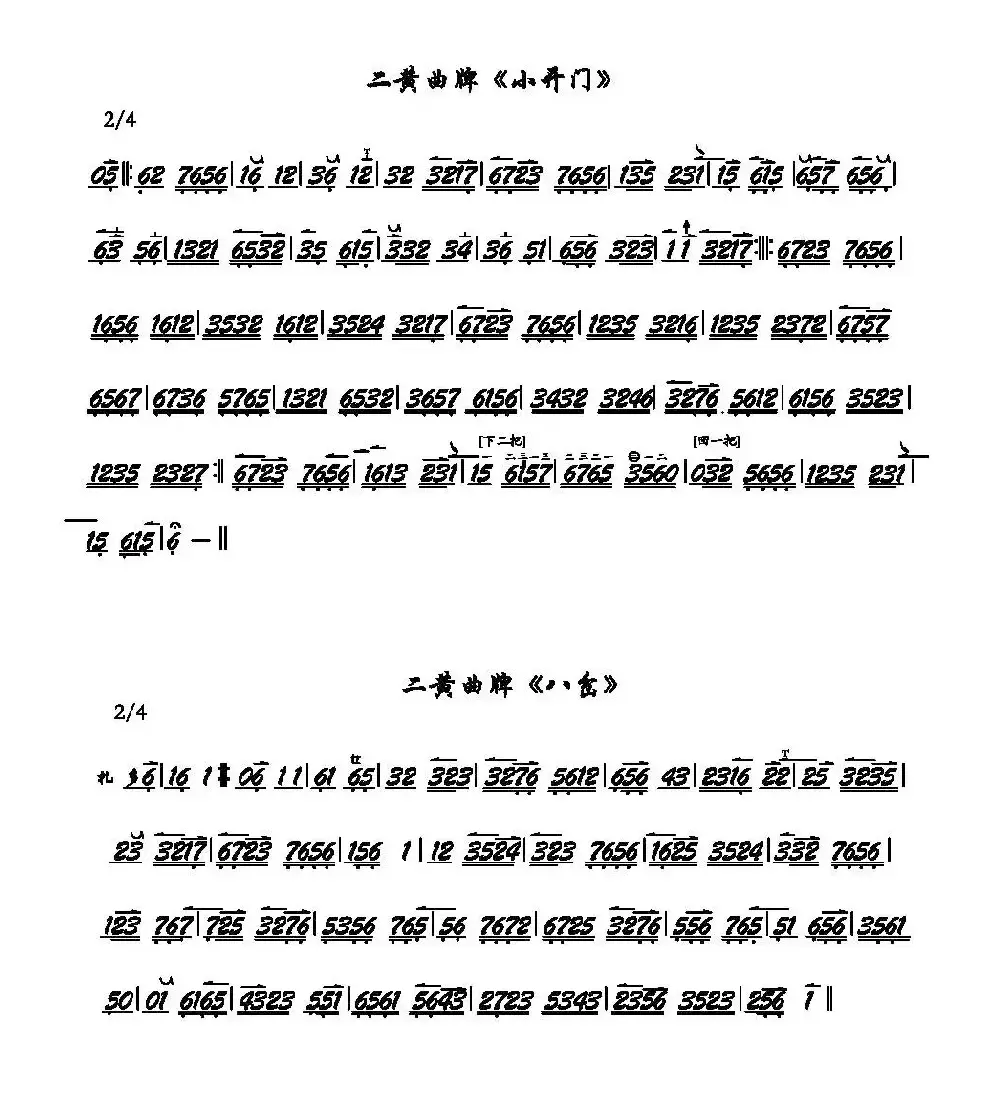 二黄曲牌《小开门》
2/4
05‖: 62 7656 | 16 12 | 36 12 | 32 3217 | 6723 7656 | 135 231 | 15 615 | 657 656 |
63 56 | 1321 6532 | 35 615 | 3332 34 | 36 51 | 656 323 | 11 3217 :‖: 6723 7656 |
1656 1612 | 3532 1612 | 3524 3217 | 6723 7656 | 1235 3216 | 1235 2372 | 6757
6567 | 6736 5765 | 1321 6532 | 3657 6156 | 3432 3246 | 3276 5612 | 6156 3523 |
[下二把] [回一把]
1235 2327 :‖ 6723 7656 | 1613 231 | 15 6157 | 6765 3560 | 032 5656 | 1235 231 |
15 615 | 6 — ‖
二黄曲牌《八岔》
2/4
扎 6 | 16 1 ‖ 06 11 | 61 65 | 32 323 | 3276 5612 | 656 43 | 2316 22 | 25 3235 |
23 3217 | 6723 7656 | 156 1 | 12 3524 | 323 7656 | 1625 3524 | 332 7656 |
123 767 | 725 3276 | 5356 765 | 56 7672 | 6725 3276 | 556 765 | 51 656 | 3561
50 | 01 6165 | 4323 551 | 6561 5643 | 2723 5343 | 2356 3523 | 256 1 ‖